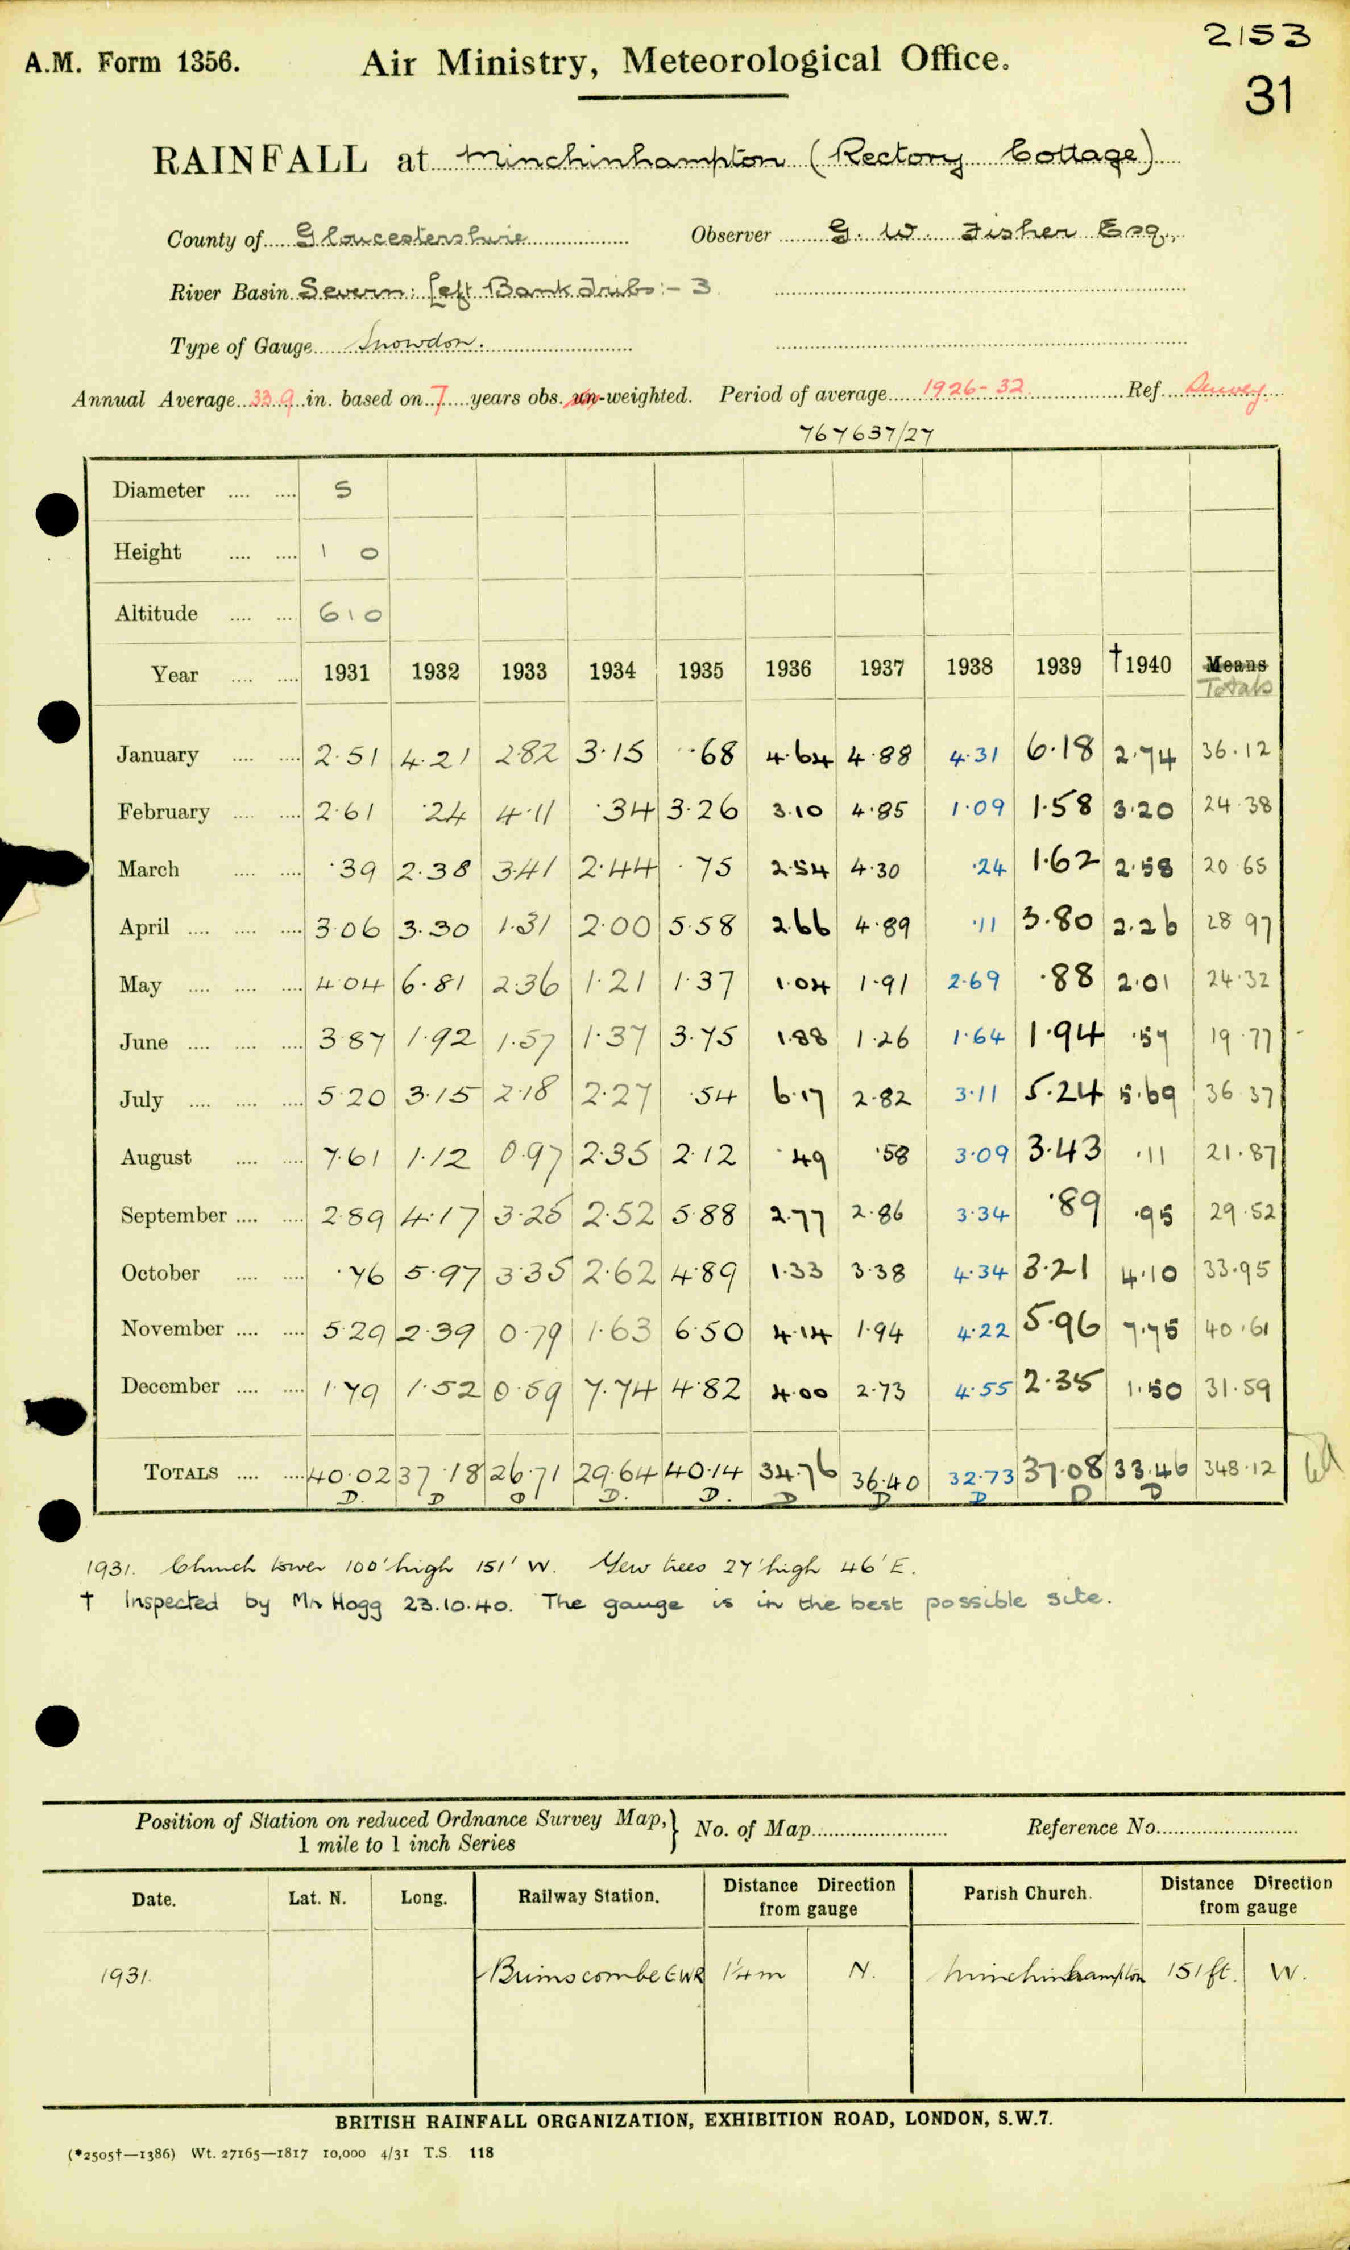 2153
A.M. Form 1356. Air Ministry, Meteorological Office.
31
RAINFALL at Minchinhampton (Rectory Cottage)
County of Gloucestershire Observer G. W. Fisher Esq.,
River Basin Severn: Left Bank Tribs:- 3
Type of Gauge Snowdon.
Annual Average 33.9 in. based on 7 years obs. un-weighted. Period of average 1926-32 Ref.
767637/27
Diameter .... .... 5
Height .... .... 1 0
Altitude .... .... 610
Year .... .... 1931 1932 1933 1934 1935 1936 1937 1938 1939 †1940 Means
Totals
January .... .... 2.51 4.21 2.82 3.15 .68 4.64 4.88 4.31 6.18 2.74 36.12
February .... .... 2.61 .24 4.11 .34 3.26 3.10 4.85 1.09 1.58 3.20 24.38
March .... .... .39 2.38 3.41 2.44 .75 2.54 4.30 .24 1.62 2.58 20 65
April .... .... .... 3.06 3.30 1.31 2.00 5.58 2.66 4.89 .11 3.80 2.26 28 97
May .... .... .... 4.04 6.81 2.36 1.21 1.37 1.04 1.91 2.69 .88 2.01 24.32
June .... .... .... 3 87 1.92 1.57 1.37 3.75 1.88 1.26 1.64 1.94 .57 19.77
July .... .... .... 5 20 3.15 2.18 2.27 .54 6.17 2.82 3.11 5.24 5.69 36 37
August .... .... 7.61 1.12 0.97 2.35 2.12 .49 .58 3.09 3.43 .11 21.87
September .... .... 2.89 4.17 3.25 2.52 5.88 2.77 2.86 3.34 .89 .95 29.52
October .... .... .76 5.97 3.35 2.62 4.89 1.33 3.38 4.34 3.21 4.10 33.95
November .... .... 5.29 2.39 0.79 1.63 6.50 4.14 1.94 4.22 5.96 7.75 40.61
December .... .... 1.79 1.52 0.59 7.74 4.82 4.00 2.73 4.55 2.35 1.50 31.59
TOTALS .... .... 40.02 37.18 26.71 29.64 40.14 34.76 36.40 32.73 37.08 33.46 348.12
D. D D D. D. D D D D D
1931. Church tower 100' high 151' W. Yew trees 27' high 46' E.
† Inspected by Mr Hogg 23.10.40. The gauge is in the best possible site.
Position of Station on reduced Ordnance Survey Map, } No. of Map Reference No.
1 mile to 1 inch Series
Date. Lat. N. Long. Railway Station. Distance Direction from gauge Parish Church. Distance Direction from gauge
1931. Brimscombe GWR 1¼m N. Minchinhampton 151 ft. W.
BRITISH RAINFALL ORGANIZATION, EXHIBITION ROAD, LONDON, S.W.7.
(*2505†—1386) Wt. 27165—1817 10,000 4/31 T.S. 118